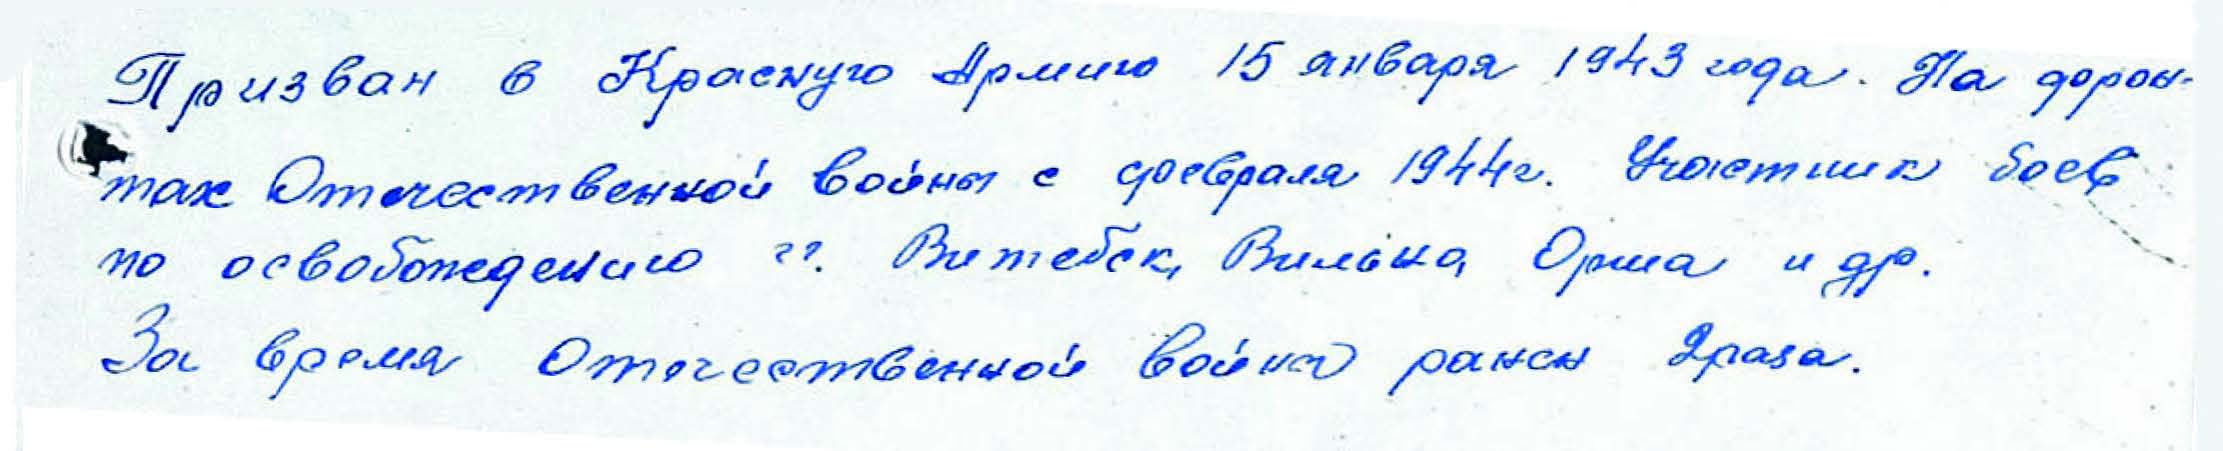 Призван в Красную Армию 15 января 1943 года. На фрон-
тах Отечественной войны с февраля 1944г. Участник боев
по освобождению гг. Витебск, Вильна, Орша и др.
За время Отечественной войны ранен 2 раза.